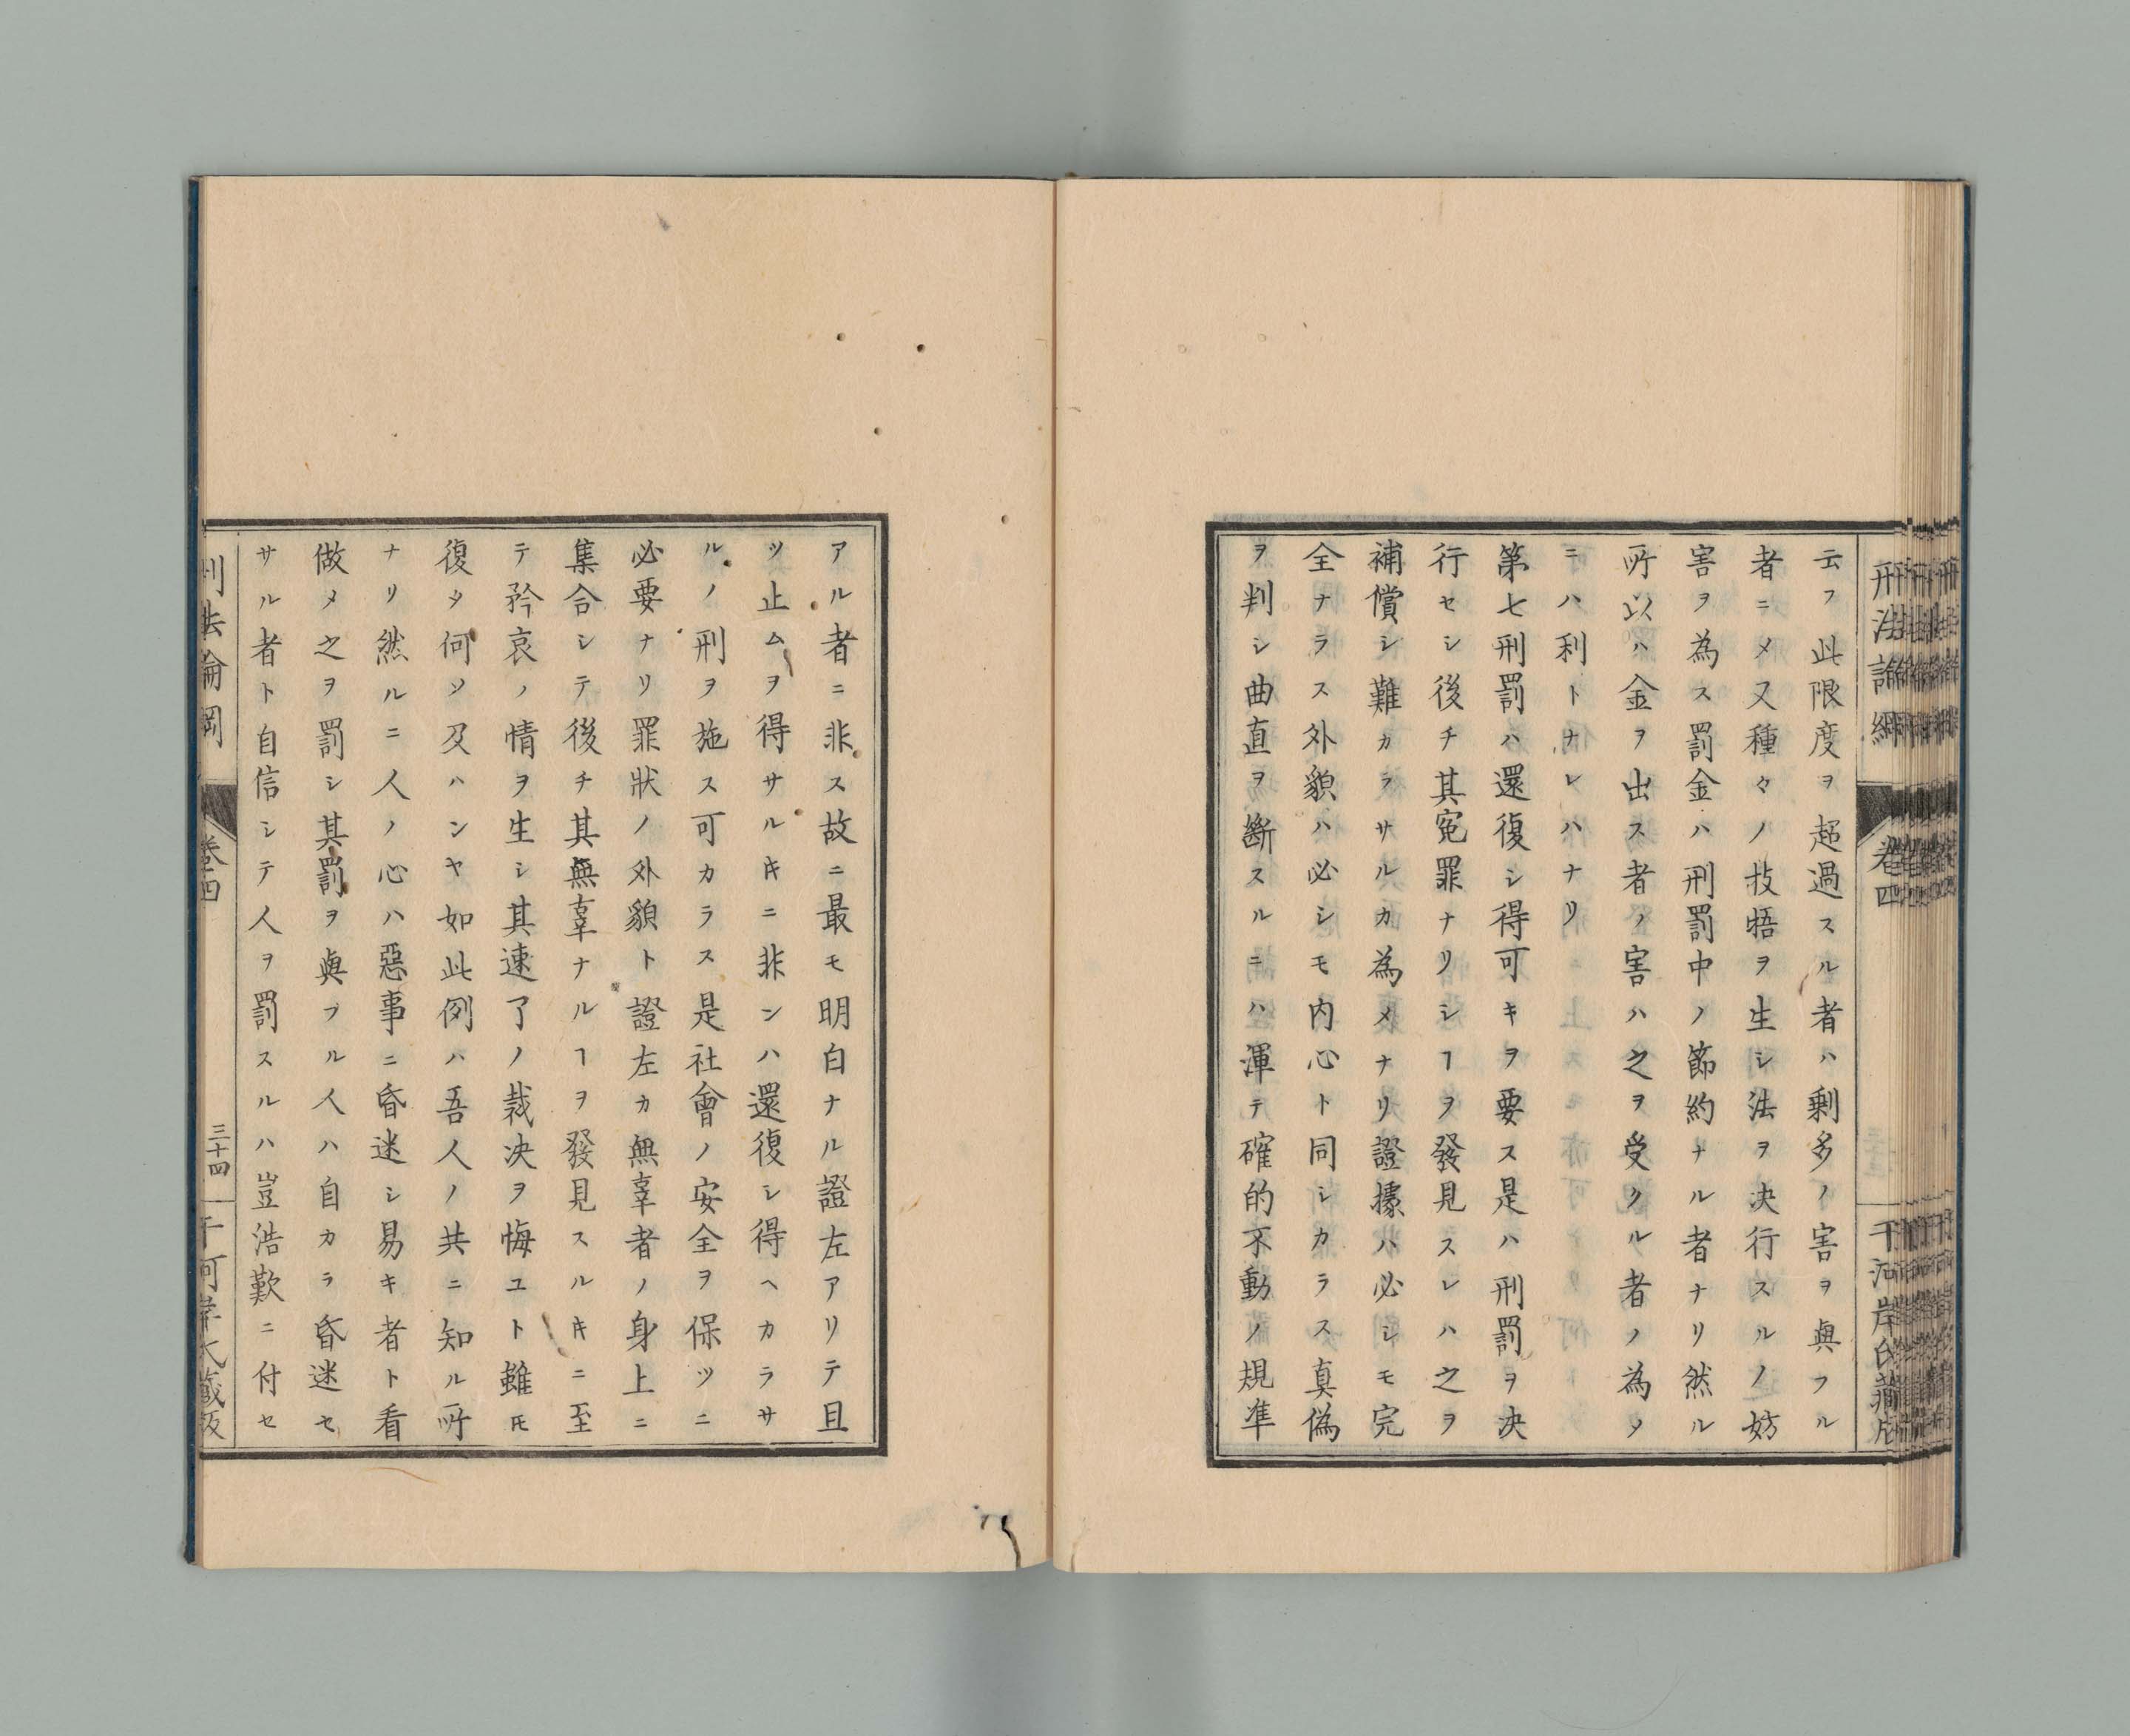 刑法論綱
卷四
云フ此限度ヲ超過スル者ハ剰多ノ害ヲ與フル
者ニメ又種々ノ技牾ヲ生シ法ヲ決行スルノ妨
害ヲ為ス罰金ハ刑罰中ノ節約ナル者ナリ然ル
所以ハ金ヲ出ス者ノ害ハ之ヲ受クル者ノ為メ
ニハ利トナレハナリ
第七刑罰ハ還復シ得可キヲ要ス是ハ刑罰ヲ決
行セシ後チ其寃罪ナリシヿヲ發見スレハ之ヲ
補償シ難カラサルカ為メナリ證據ハ必シモ完
全ナラス外貌ハ必シモ内心ト同シカラス真偽
ヲ判シ曲直ヲ斷スルニハ渾テ確的不動ノ規準
アル者ニ非ス故ニ最モ明白ナル證左アリテ且
ツ止ムヲ得サルキニ非ンハ還復シ得ヘカラサ
ルノ刑ヲ施ス可カラス是社會ノ安全ヲ保ツニ
必要ナリ罪狀ノ外貌ト證左カ無辜者ノ身上ニ
集合シテ後チ其無辜ナルヿヲ發見スルキニ至
テ矜哀ノ情ヲ生シ其速了ノ裁決ヲ悔ユト雖𪜈
復タ何ソ及ハンヤ如此例ハ吾人ノ共ニ知ル所
ナリ然ルニ人ノ心ハ惡事ニ昏迷シ易キ者ト看
做メ之ヲ罰シ其罰ヲ與フル人ハ自カラ昏迷セ
サル者ト自信シテ人ヲ罰スルハ豈浩歎ニ付セ
刑法論綱
卷四
三十四